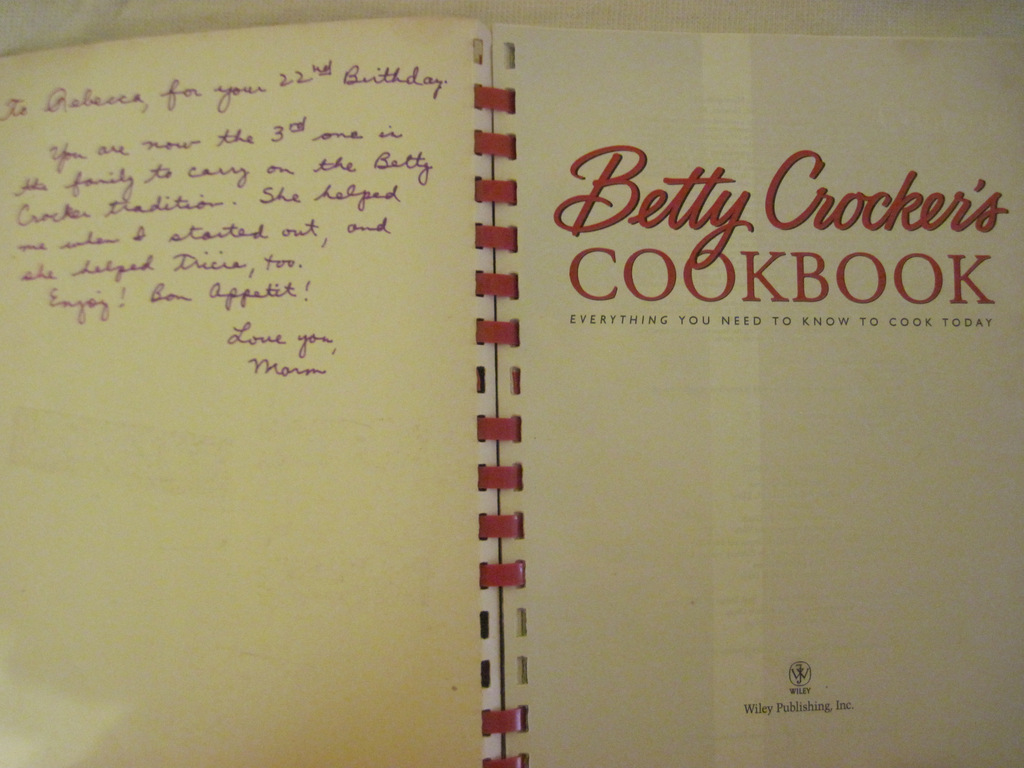 To Rebecca, for your 22nd Birthday.
You are now the 3rd one in
the family to carry on the Betty
Crocker tradition. She helped
me when I started out, and
she helped Tricia, too.
Enjoy! Bon Appetit!
Love you,
Marm
Betty Crocker's
COOKBOOK
EVERYTHING YOU NEED TO KNOW TO COOK TODAY
WILEY
Wiley Publishing, Inc.